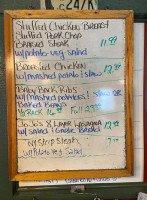 24/7
Stuffed Chicken Breast
Stuffed Pork Chop
Breaded Steak 11.99
w/potato veg-salad
Breaded Chicken 12.99
w/mashed potatos + slaw
Baby Back Ribs
w/mashed potatos / slaw or
Baked Beans
1/2 Rack 16.99 Full
Layer Lasagna
w/salad / Garlic Bread
NY Strip Steak
w/Potato Veg Salad